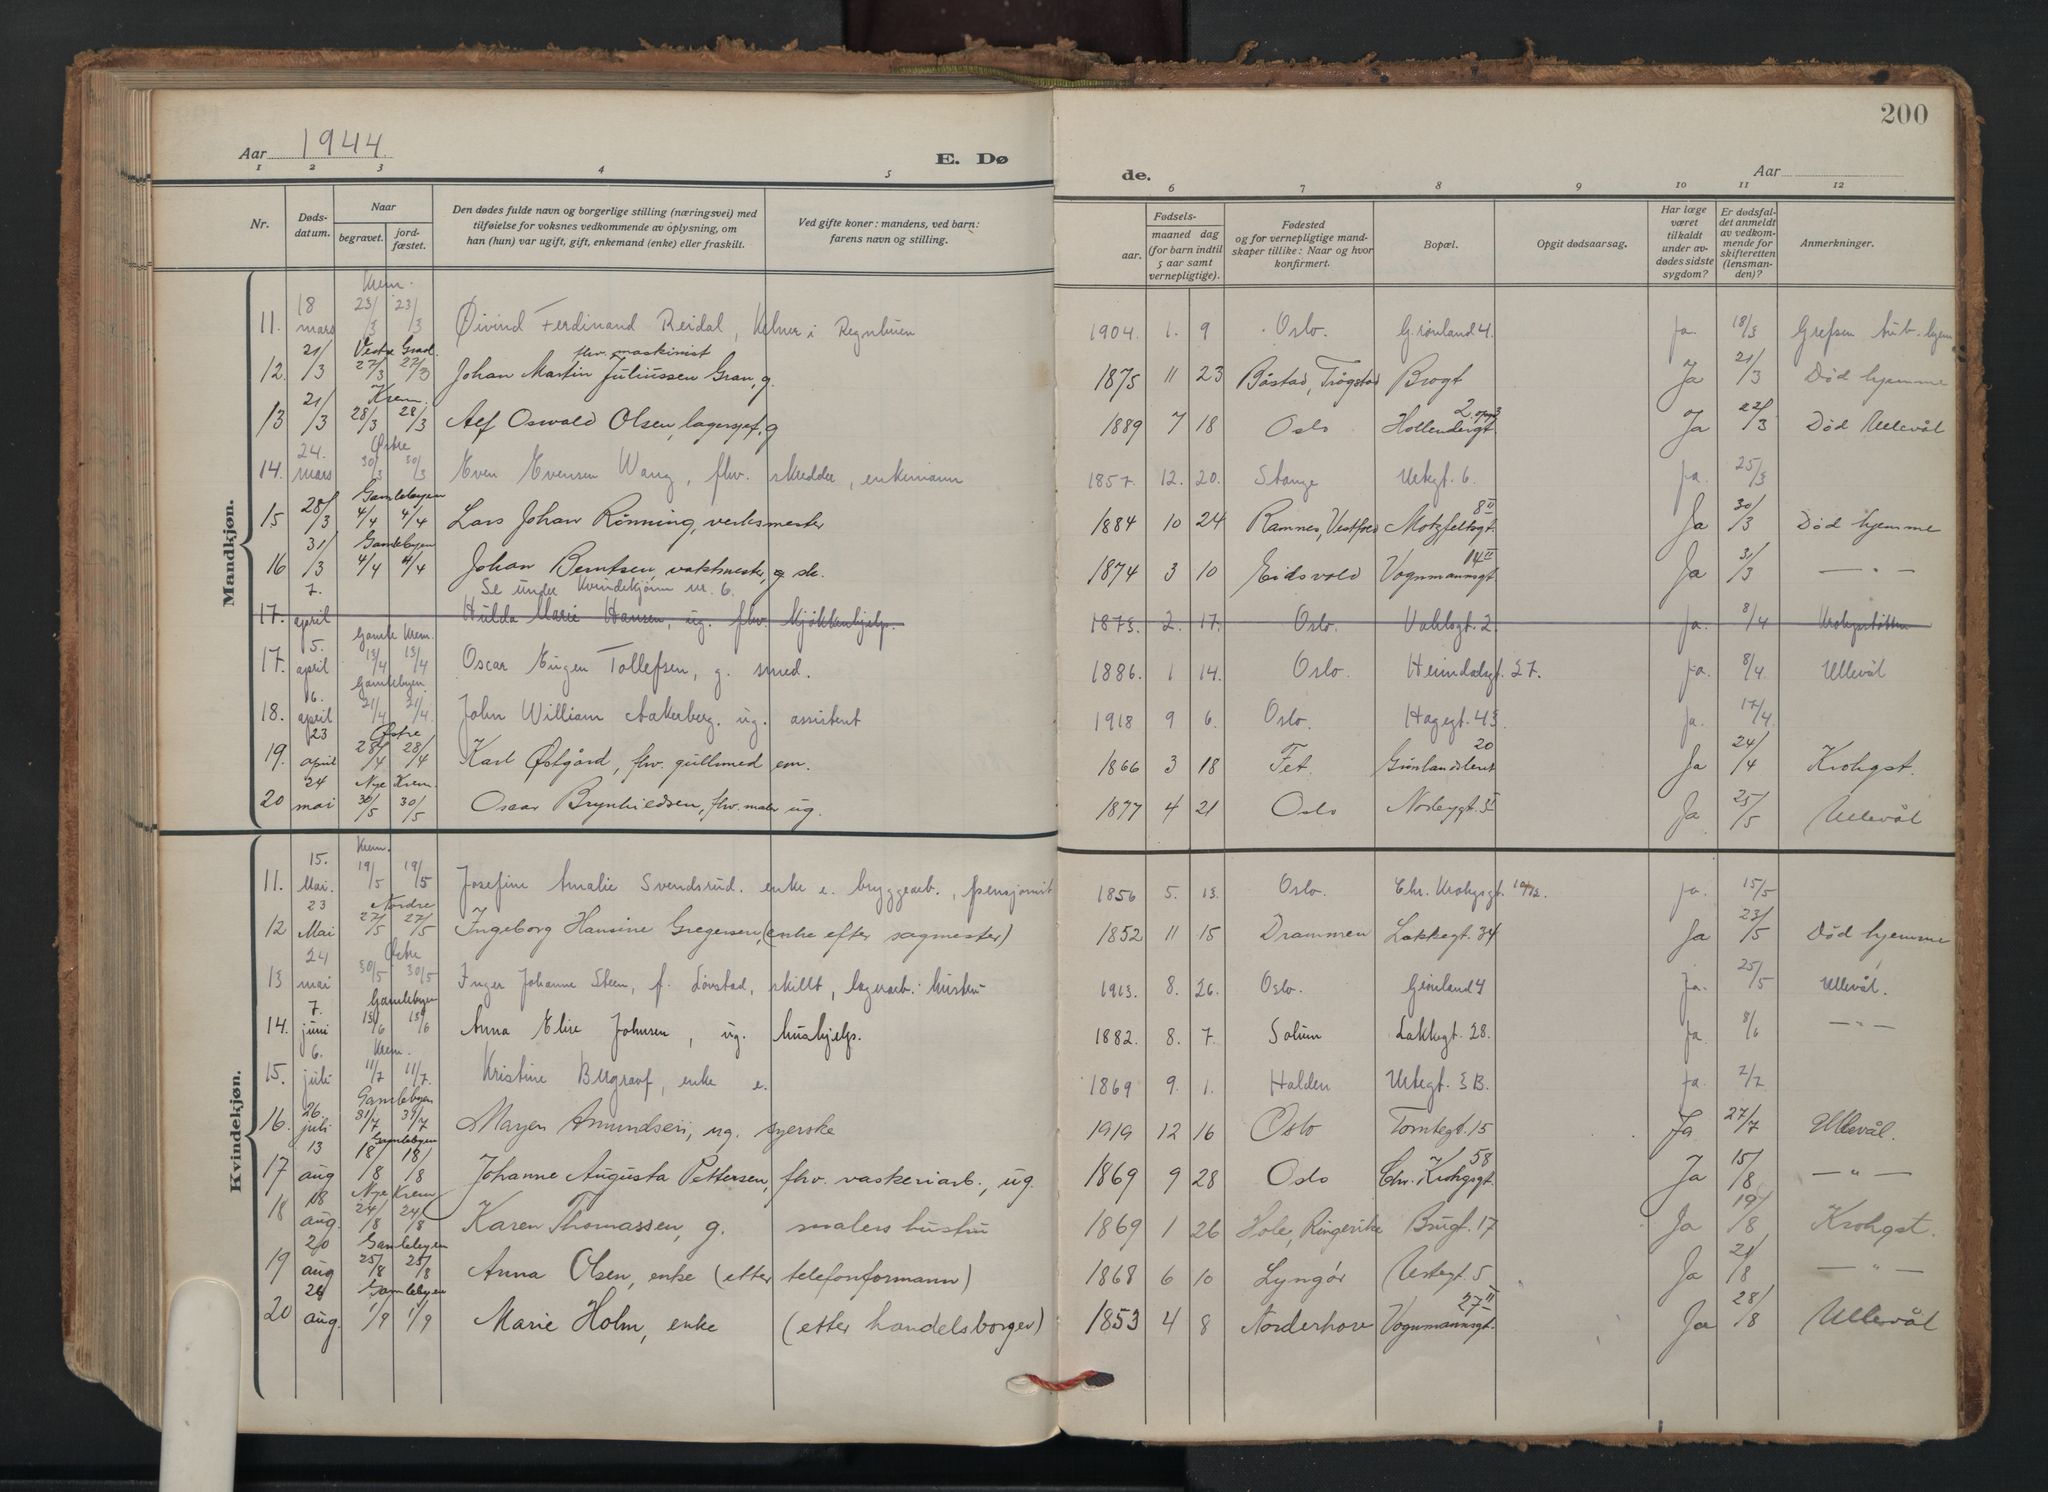 200
Aar 1944
E. Dø
de.
Aar
1 2 3 4 5 6 7 8 9 10 11 12
Nr.
Døds-
datum.
Naar
begravet.
jord-
fæstet.
Den dødes fulde navn og borgerlige stilling (næringsvei) med
tilføielse for voksnes vedkommende av oplysning, om
han (hun) var ugift, gift, enkemand (enke) eller fraskilt.
Ved gifte koner: mandens, ved barn:
farens navn og stilling.
Fødsels-
aar. maaned dag
(for barn indtil
5 aar samt
vernepligtige).
Fødested
og for vernepligtige mand-
skaper tillike: Naar og hvor
konfirmert.
Bopæl.
Opgit dødsaarsag.
Har læge
været
tilkaldt
under av-
dødes sidste
sygdom?
Er dødsfal-
det anmeldt
av vedkom-
mende for
skifteretten
(lensman-
den)?
Anmerkninger.
Mandkjøn.
Krem.
11. 18 mars 23/3 23/3 Øivind Ferdinand Reidal, Kelner i Regnbuen 1904. 1. 9 Oslo. Grønland 4. ja. 18/3 Grefsen tub. hjem
Vestre Grav.
fhv. maskinist
12. 21/3 27/3 27/3 Johan Martin Juliussen Gran, g. 1875 11 23 Båstad, Trøgstad Brogt Ja 21/3 Død hjemme
Krem.
13 21/3 28/3 28/3 Alf Oswald Olsen, lagersjef, g 1889 7 18 Oslo Hollendergt 2. Ja 22/3 Død Ullevål
Østre
14. 24. mars 30/3 30/3 Even Evensen Wang, fhv. skredder, enkemann 1857. 12. 20. Stange Urtegt. 6. ja. 25/3
Gamlebyen
15 28/3 4/4 4/4 Lars Johan Rönning, verksmester 1884 10 24 Ramnes, Vestfold Motzfeltsgt. 8 II Ja 30/3 Død hjemme
Gamlebyen
16 31/3 4/4 4/4 Johan Berntsen, vaktmester, g 1874 3 10 Eidsvold Vognmannsgt 14 II Ja 31/3 — " —
Se under Kvindekjønn nr. 6.
17. 7. april Hulda Marie Hansen, ug. fhv. kjøkkenhjelp. 1873. 2. 17. Oslo. Vahlsgt. 2. ja. 8/4 Krohgstøtten
Gamle Krem.
17. 5. april 13/4 13/4 Oscar Eugen Tollefsen, g. smed. 1886. 1 14. Oslo. Heimdalsgt. 27. ja. 8/4. Ullevål
Gamlebyen.
18. 16. april 21/4 21/4. John William Aakerberg. ug. assistent 1918 9 6. Oslo. Hagegt. 43 ja. 17/4.
Østre
19. 23 april 28/4 28/4 Karl Østgård, fhv. gullsmed em. 1866 3 18 Fet Grønlandsleret 20 Ja 24/4 Krohgst.
Nye Krem.
20 24 mai 30/5 30/5 Oscar Brynhildsen, fhv. maler ug. 1877 4 21 Oslo Norbygt. Ja 25/5 Ullevål
Kvindekjøn.
Krem.
11. 15. Mai. 19/5 19/5 Josefine Amalie Svendsrud. enke e. bryggearb., pensjonist 1856 5. 13. Oslo. Chr. Krohgsgt. ja. 15/5
Nordre
12 23 Mai 27/5 27/5 Ingeborg Hansine Gregersen, (enke efter sagmester) 1852 11 15 Drammen Lakkegt. 34 Ja 23/5 Død hjemme
Østre
13 24 mai 30/5 30/5 Inger Johanne Steen, f. Lövstad, skillt, lagerarb. hustru 1913. 8. 26. Oslo. Grønland 4 ja. 25/5 Ullevål.
Gamlebyen
14. 7. juni 13/6 13/6 Anna Elise Johnsen, ug. hushjelp. 1882. 8. 7. Solum Lakkegt. 28. ja. 8/6 — " —
Krem.
15. 6. juli 11/7 11/7. Kristine Bergrav, enke e. 1869 9. 1. Halden Urtegt. ja. 7/7
Gamlebyen
16. 26. juli 31/7 31/7 Maryen Amundsen, ug. syerske 1919 12 16 Oslo Tomtegt. 15 Ja. 27/7 Ullevål.
Gamlebyen
17 13 aug 18/8 18/8 Johanne Augusta Pettersen, fhv. vaskeriarb., ug. 1869 9 28 Oslo Chr. Krohgsgt. 58 Ja 15/8 — " —
Nye Krem
18 18 aug. 24/8 24/8 Karen Thomassen, g. malers hustru 1869 1 26 Hole, Ringerike Brugt. 17 Ja 19/8 Krohgst.
Gamlebyen
19 20 aug 25/8 25/8 Anna Olsen, enke (etter telefonformann) 1868 6 10 Lyngør Urtegt. 5 Ja 21/8 — " —
Gamlebyen
20 26 aug. 1/9 1/9 Marie Holm, enke (etter handelsborger) 1853 4 8 Norderhov Vognmannsgt. 27 II Ja 28/8 Ullevål